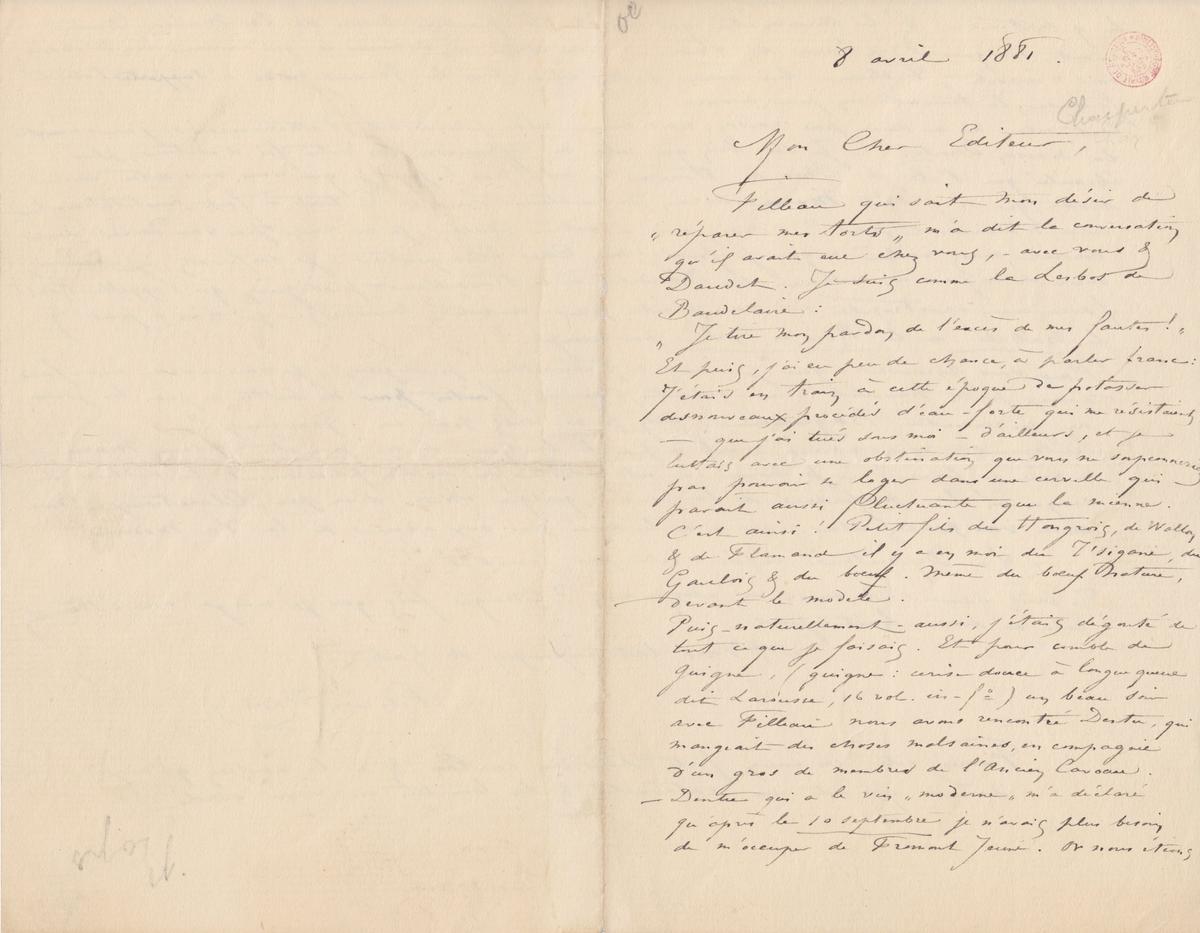 8 avril 1881.
Charpentier
Mon Cher Editeur,
Filleau qui sait mon désir de
„ réparer mes torts „ m'a dit la conversation
qu'il avait eue chez vous, - avec vous &
Daudet. Je suis comme la Lesbos de
Baudelaire :
„ Je tire mon pardon de l'excès de mes fautes ! „
Et puis, j'ai eu peu de chance, à parler franc :
J'étais en train à cette époque de potasser
des nouveaux procédés d'eau-forte qui me résistaient
— que j'ai tués sous moi — d'ailleurs, et je
luttais avec une obstination que vous ne soupçonneriez
pas pouvoir se loger dans une cervelle qui
parait aussi fluctuante que la mienne.
C'est ainsi ! Petit fils de Hongrois, de Wallon
& de Flamand il y a en moi du Tsigane, du
Gaulois & du boeuf. Même du boeuf nature,
devant le modèle.
Puis - naturellement - aussi, j'étais dégouté de
tout ce que je faisais. Et pour comble de
guigne, (guigne : cerise douce à longue queue
dit Larousse, 16 vol. in-fº) un beau soir
avec Filleau nous avons rencontré Dentu, qui
mangeait des choses malsaines, en compagnie
d'un gros de membres de l'Ancien Caveau.
— Dentu qui a le vin „ moderne „ m'a déclaré
qu'après le 10 septembre je n'avais plus besoin
de m'occuper de Fromont Jeune. Or nous étions
Rops